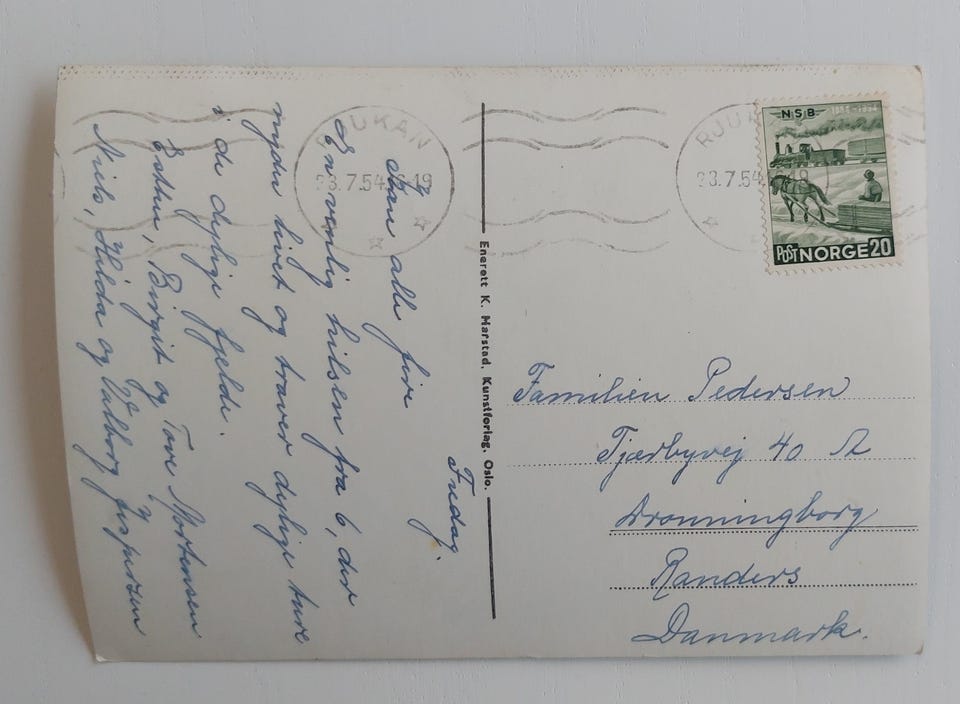 Fredag.
Kære alle fire
En venlig hilsen fra 6, der
nyder livet og traver dejlige ture
i de dejlige fjelde.
Esther, Birgit og Tove Mortensen
Niels, Hilda og Valborg Jespersen
Enerett K. Harstad. Kunstforlag. Oslo.
RJUKAN
23.7.54
19
RJUKAN
23.7.54
19
NSB 1854-1954
POST NORGE 20
Familien Pedersen
Tjærbyvej 40
Dronningborg
Randers
Danmark.